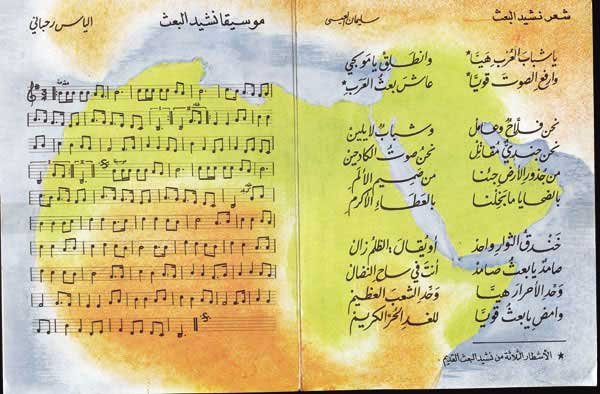 شعر نشيد البعث سليمان العيسى
يا شباب العُرب هيّا* وانطلق يا موكبي
وارفع الصوت قويّا* عاش بعث العرب*
نحن فلاحٌ وعامل وشبابٌ لا يلين
نحن جنديٌّ مقاتل نحن صوت الكادحين
من جذور الأرض جئنا من صميم الألم
بالضحايا ما بخلنا بالعطاء الأكرم
خندق الثوار واحد أو يقال: الظلم زال
صامدٌ يا بعث صامد أنت في ساح النضال
وحّد الأحرار هيّا وحّد الشعب العظيم
وامض يا بعث قويّا للغد الحرّ الكريم
* الأشطار الثلاثة من نشيد البعث القديم.
موسيقا نشيد البعث الياس رحباني
مقدمة